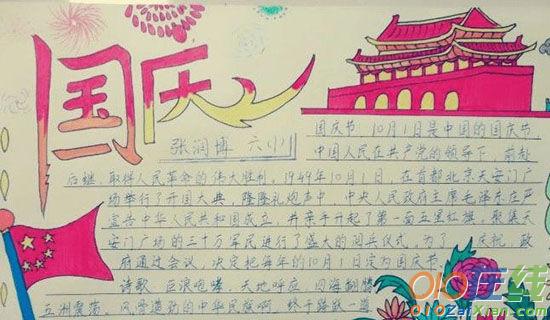 国庆
张润博 六(1)
国庆节 10月1日是中国的国庆节,
中国人民在共产党的领导下,前赴
后继,取得人民革命的伟大胜利,1949年10月1日,在首都北京天安门广
场举行了开国大典,隆隆礼炮声中,中央人民政府主席毛泽东庄严
宣告中华人民共和国成立,并亲手升起了第一面五星红旗,聚集天
安门广场的三十万军民进行了盛大的阅兵仪式,为了 庆祝,政
府通过会议,决定把每年的10月1日定为国庆节。
诗歌 巨浪咆哮,天地呼应,四海翻腾
五洲震荡,风雷激动的中华民族啊 终于
在线
ZaiXian.com